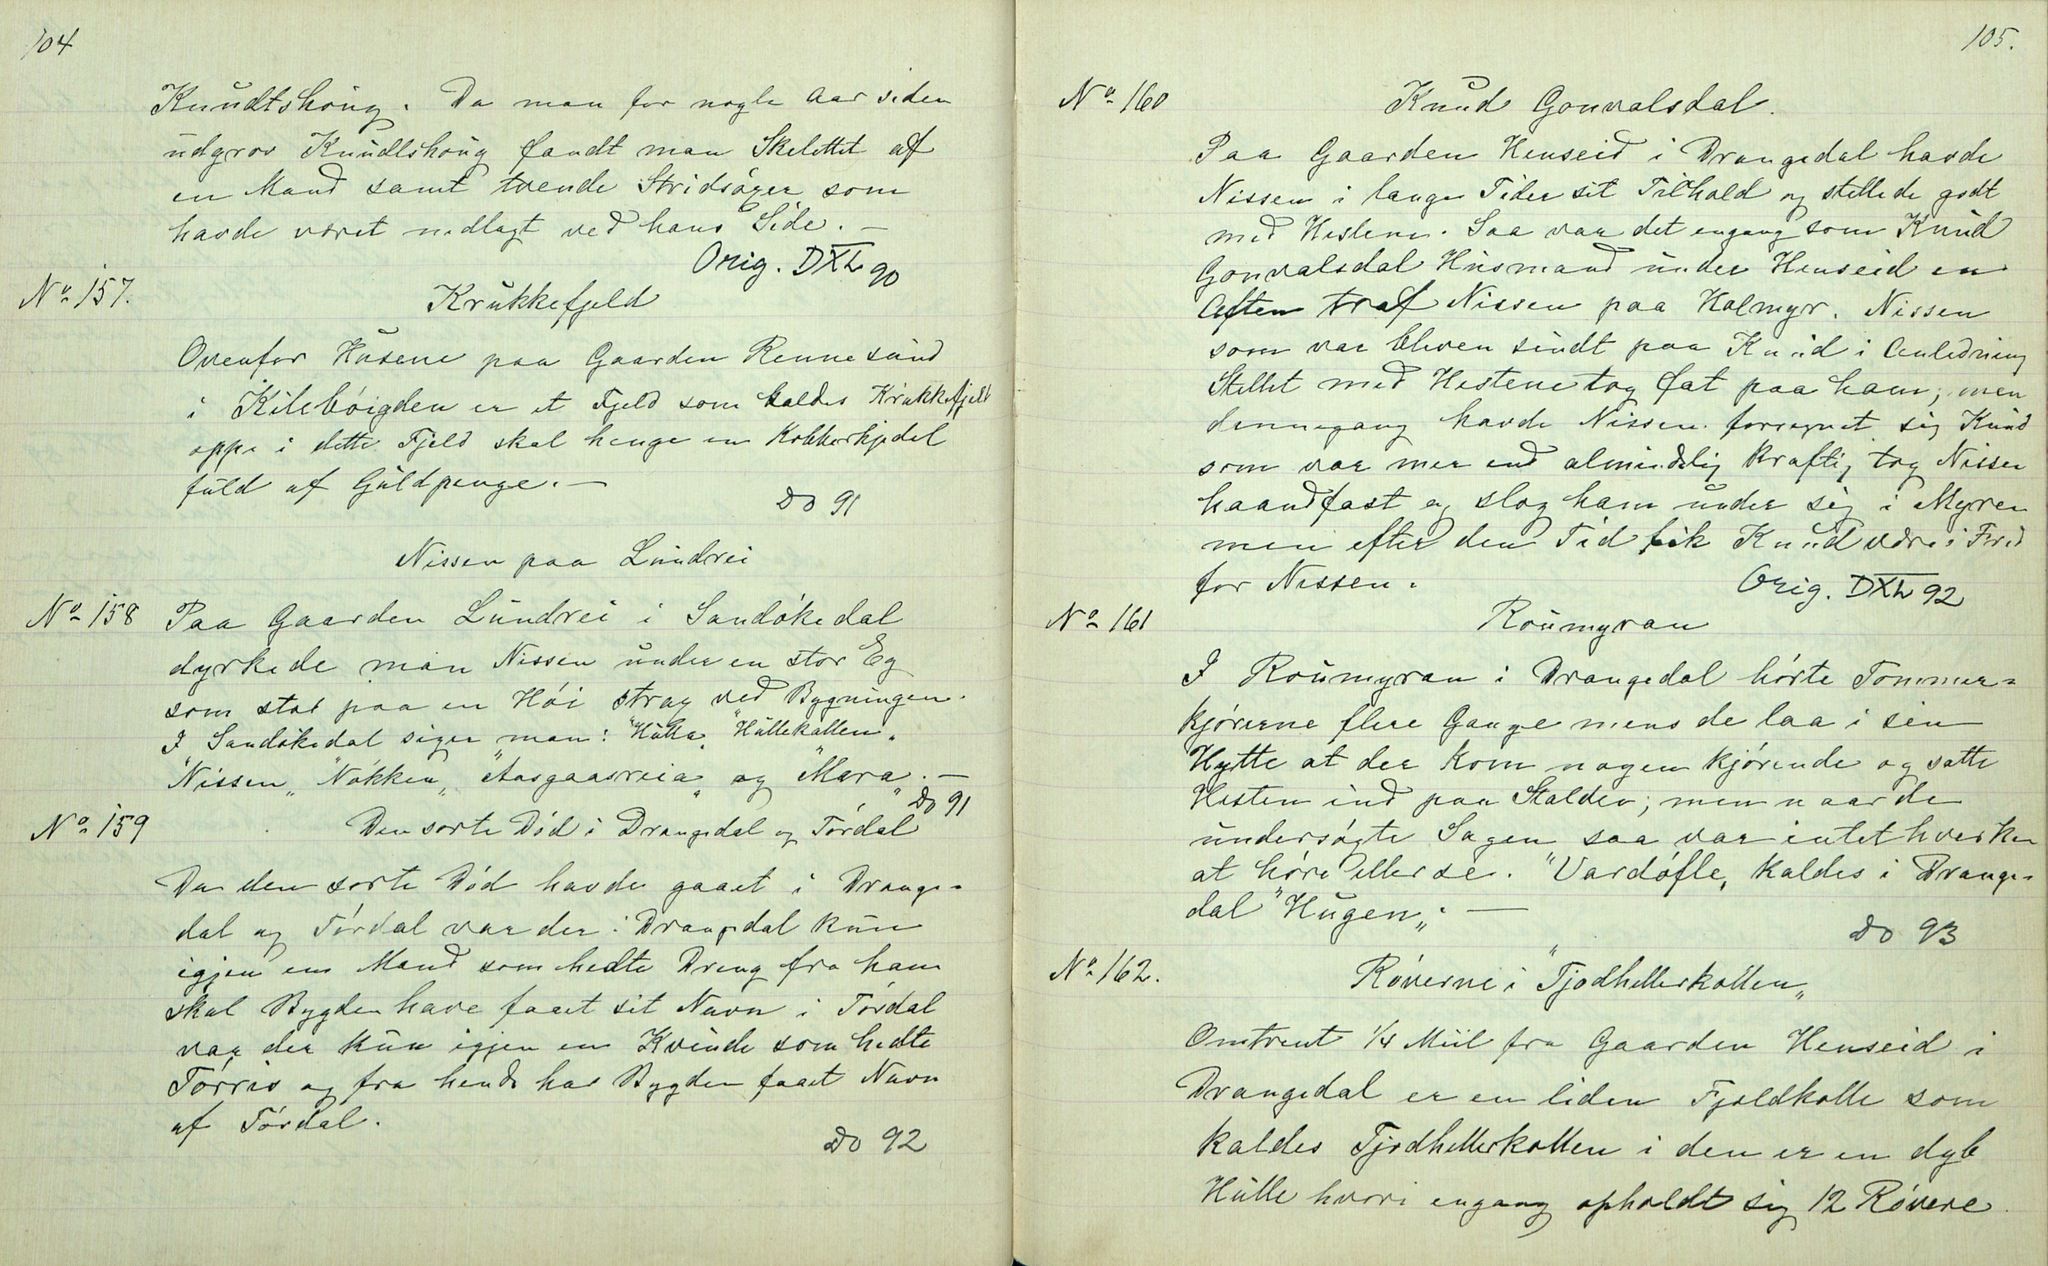 104
Knudtshoug. Da man for nogle Aar siden
udgrov Knudtshoug fandt man Skelettet af
en Mand samt tvende Stridsöxer som
havde været nedlagt ved hans Side. —
Orig. DXL 90
No 157.
Krukkefjeld
Ovenfor Husene paa Gaarden Rennesund
i Kilebóigden er et Fjeld som kaldes Krukkefjeld
oppe i dette Fjeld skal henge en Kobberkjedel
fuld af Guldpenge. —
Do 91
Nissen paa Lundrei
No 158 Paa Gaarden Lundrei i Sandókedal
dyrkede man Nissen under en stor Eg
som stod paa en Hói strax ved Bygningen.
I Sandókedal siger man: "Hulla„ "Hullekallen„
"Nissen„ "Nókken„ "Aasgaasreia„ og "Mara„. —
Do 91
No 159
Den sorte Dód i Drangedal og Tórdal
Da den sorte Dód havde gaaet i Drange-
dal og Tórdal var der i Drangedal kun
igjen en Mand som hedte Dreng fra ham
skal Bygden have faaet sit Navn i Tórdal
var der kun igjen en Kvinde som hedte
Tórris og fra hende har Bygden faaet Navn
af Tórdal.
Do 92
105.
No 160
Knud Gonvalsdal.
Paa Gaarden Henseid i Drangedal havde
Nissen i lange Tider sit Tilhold og stellede godt
med Hestene. Saa var det engang som Knud
Gonvalsdal Husmand under Henseid en
Aften traf Nissen paa Kalmyr. Nissen
som var bleven sindt paa Knud i Anledning
Stellet med Hestene tog fat paa ham; men
dennegang havde Nissen forregnet sig Knud
som var mer end almindelig kraftig tog Nissen
haandfast og slog ham under sig i Myren
men efter den Tid fik Knud være i Fred
for Nissen.
Orig. DXL 92
No 161
Roumyran
I Roumyran i Drangedal hórte Tommer=
kjórerne flere Gange mens de laa i sin
Hytte at der kom nogen kjórende og satte
Hesten ind paa Stalden; men naar de
undersógte Sagen saa var intet hverken
at hóre eller se. "Vardófle„ kaldes i Drange=
dal "Hugen„. —
Do 93
No 162.
Róverne i "Tjodhellerkollen„
Omtrent 1/4 Miil fra Gaarden Henseid i
Drangedal er en liden Fjeldkolle som
kaldes Tjodhellerkollen i den er en dyb
Hulle hvori engang opholdt sig 12 Róvere